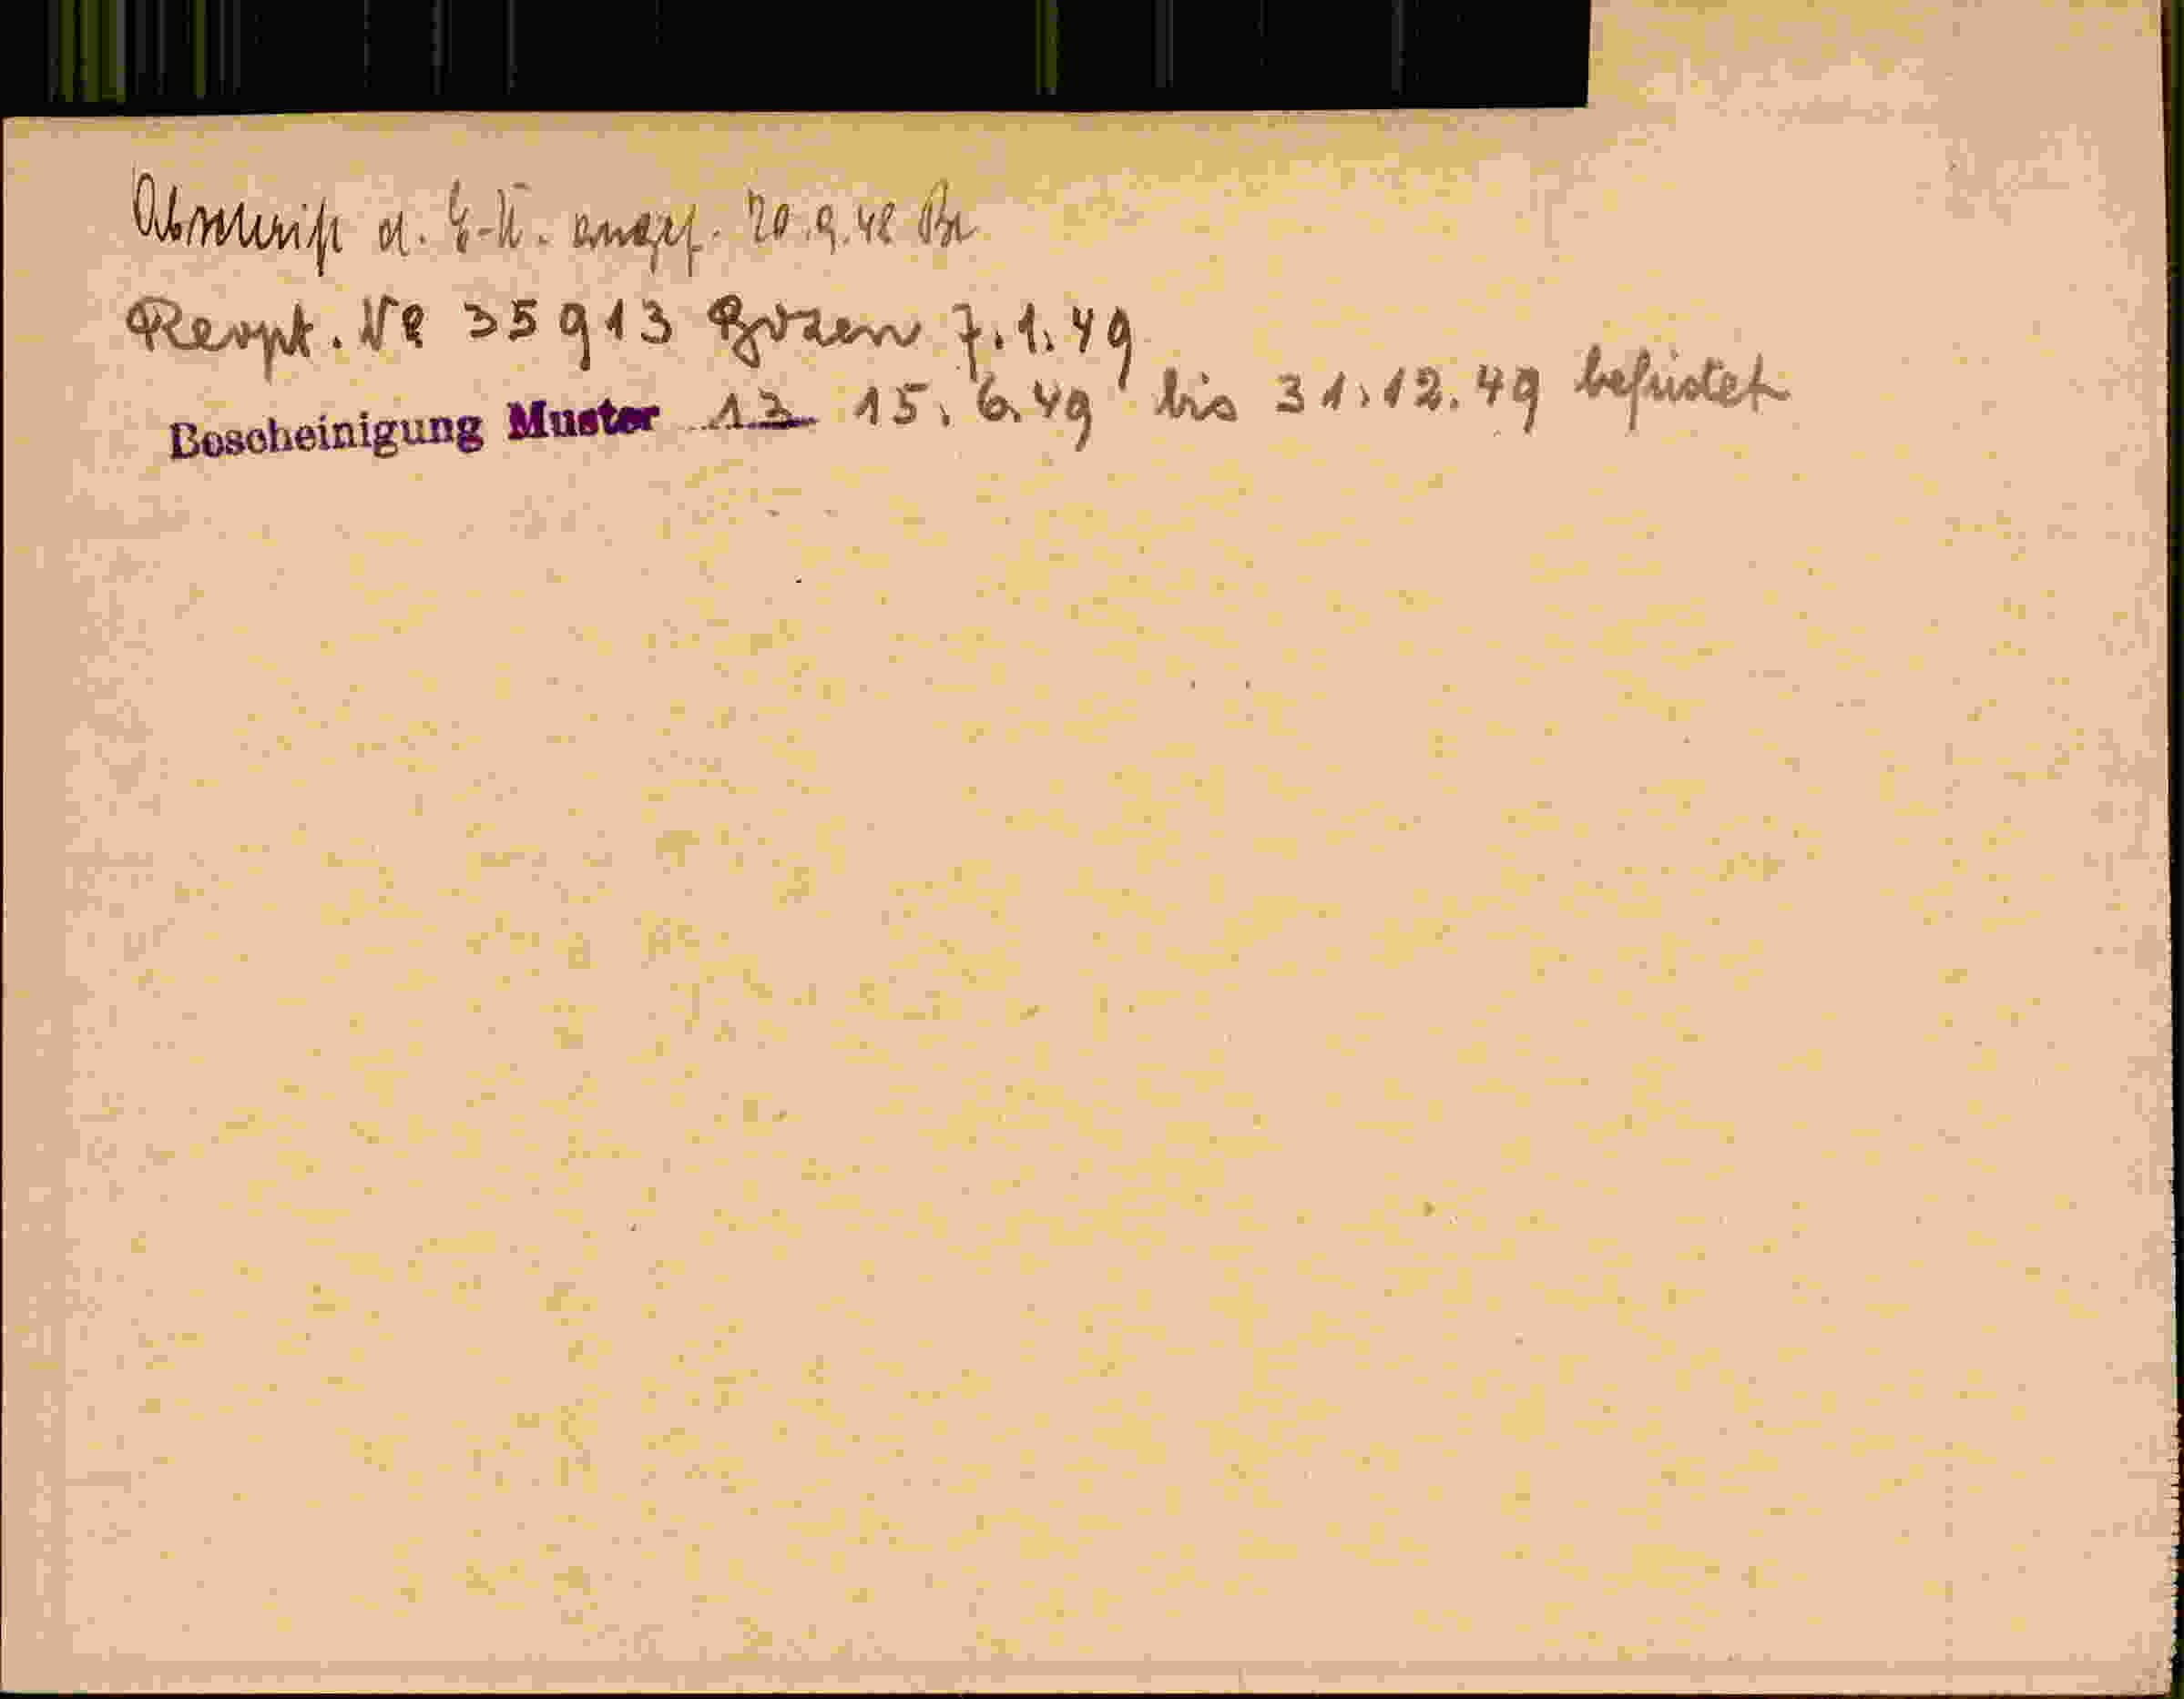 Abschrift d. E-U. angef. 20.9.48 Br
Reopt. Nº 35913 Bozen 7.1.49
Bescheinigung Muster 13 15.6.49 bis 31.12.49 befristet